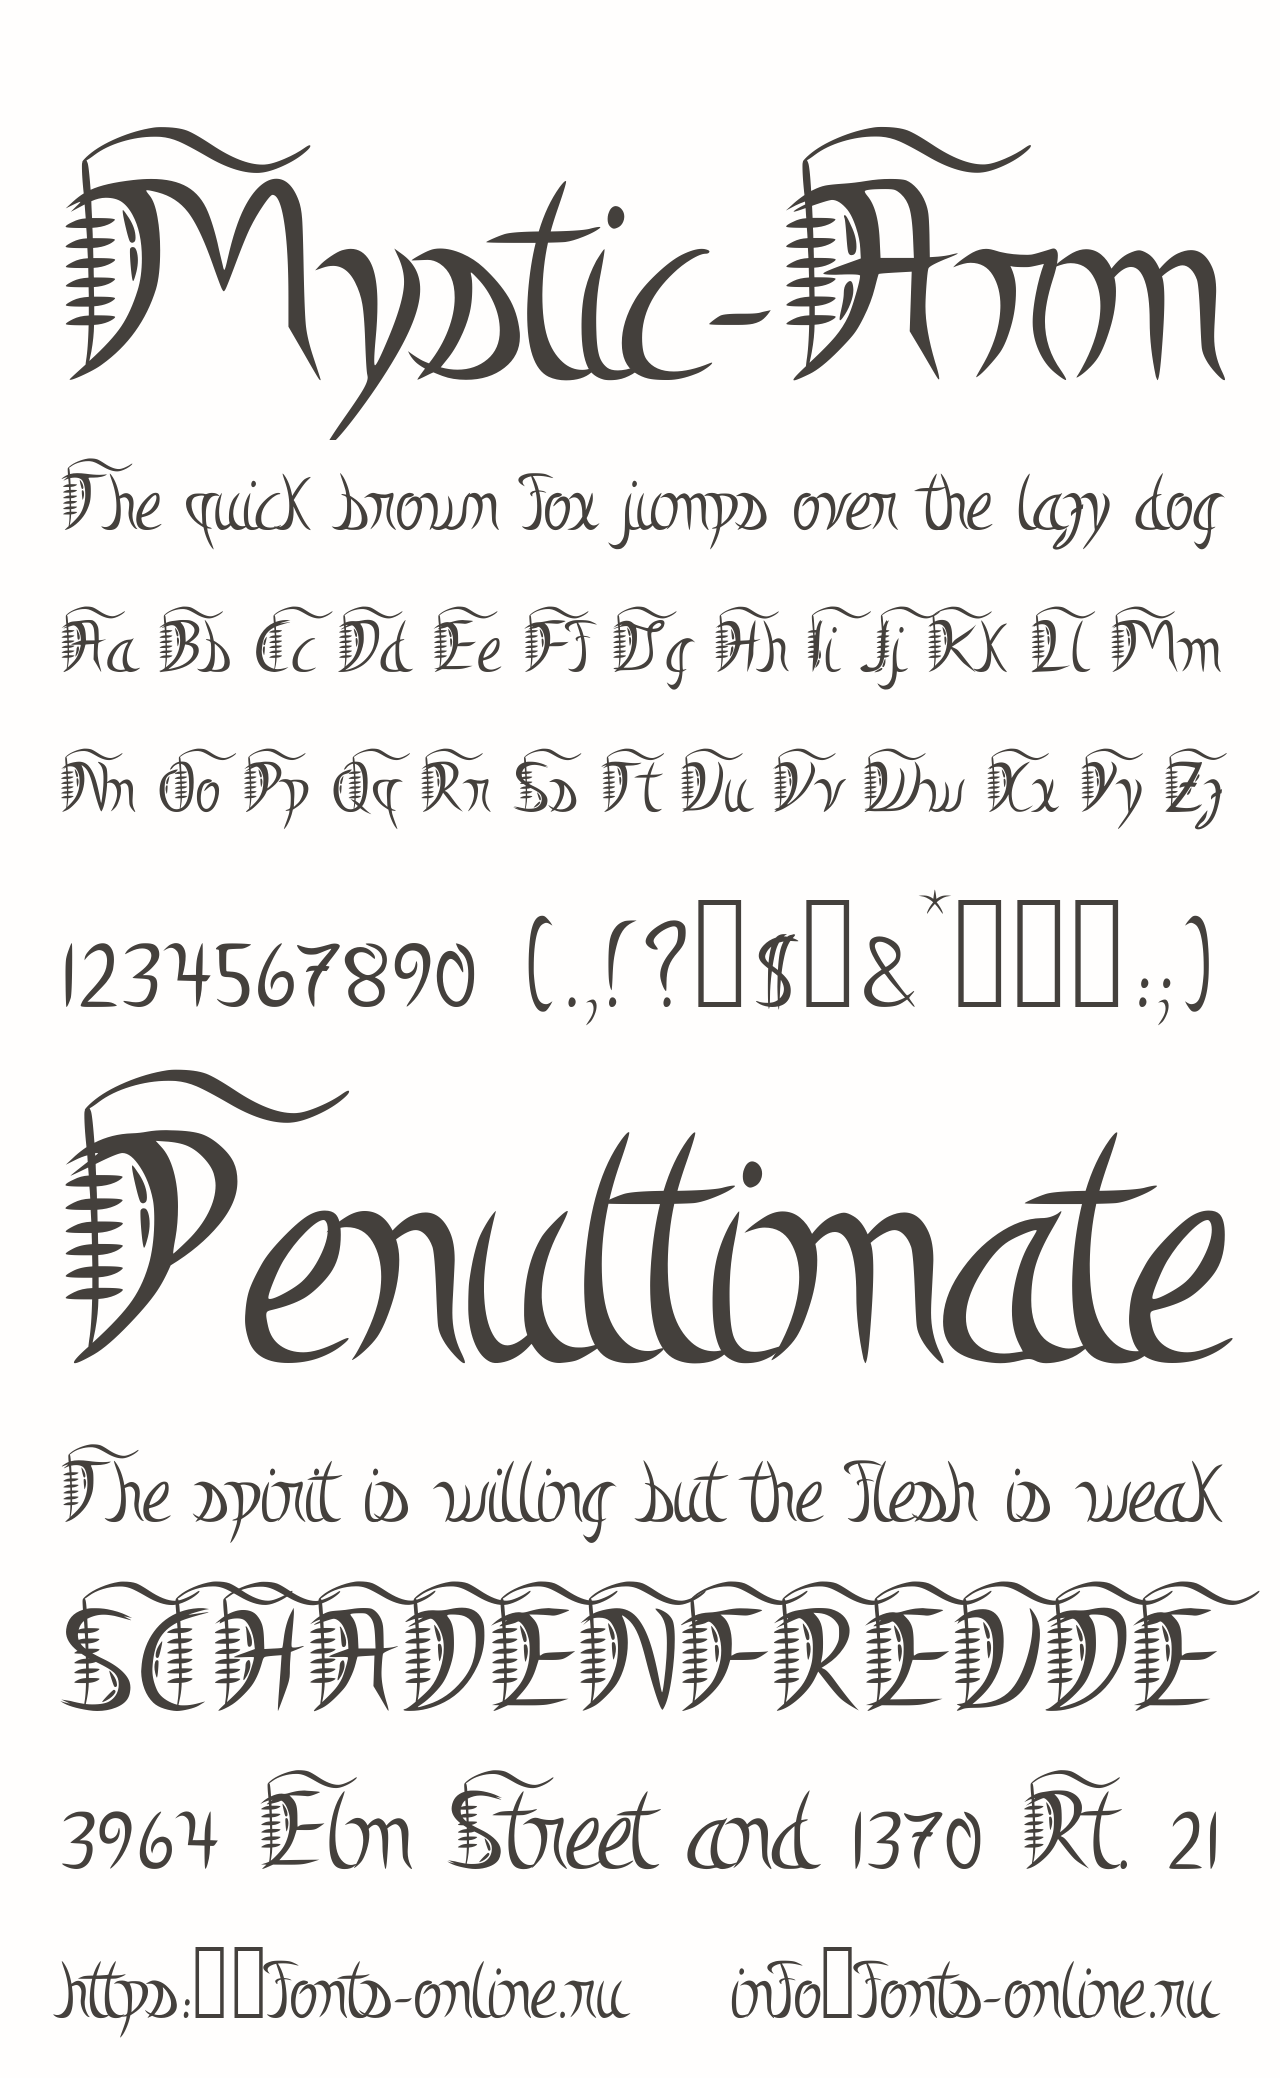 Mystic-Arm
The quick brown fox jumps over the lazy dog
Aa Bb Cc Dd Ee Ff Gg Hh Ii Jj Kk Ll Mm
Nn Oo Pp Qq Rr Ss Tt Uu Vv Ww Xx Yy Zz
1234567890 (.,!?□$□&*□□□:;)
Penultimate
The spirit is willing but the flesh is weak
SCHADENFREUDE
3964 Elm Street and 1370 Rt. 21
https:□□fonts-online.ru info□fonts-online.ru